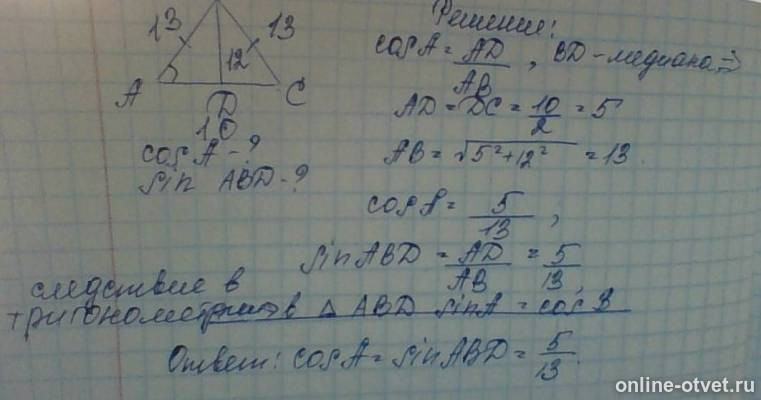 13 13
12
A D C
10
cos A - ?
sin ABD - ?
Решение:
cos A = AD/AB, BD - медиана ⇒
AD = DC = 10/2 = 5
AB = √5²+12² = 13.
cos A = 5/13,
sin ABD = AD/AB = 5/13,
следствие в
тригонометрии в △ ABD sin A = cos B
Ответ: cos A = sin ABD = 5/13.
online-otvet.ru